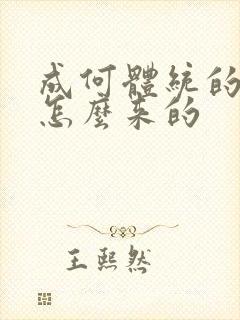 成何體統的
怎麼来的
王熙然